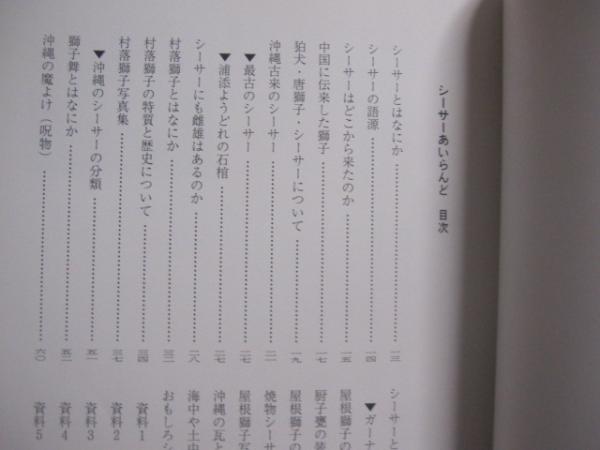 シーサーあいらんど　目次
シーサーとはなにか……………一三
シーサーの語源……………一四
シーサーはどこから来たのか……………一五
中国に伝来した獅子……………一七
狛犬・唐獅子・シーサーについて……………一九
沖縄古来のシーサー……………二一
▼最古のシーサー……………二七
▼浦添ようどれの石棺……………二七
シーサーにも雌雄はあるのか……………二八
村落獅子とはなにか……………三二
村落獅子の特質と歴史について……………三四
村落獅子写真集……………三七
▼沖縄のシーサーの分類……………五一
獅子舞とはなにか……………五二
沖縄の魔よけ（呪物）……………六〇
シーサーと
▼ガーナ
屋根獅子の
厨子甕の装
屋根獅子の
焼物シーサ
屋根獅子写
沖縄の瓦と
海中や土中
おもしろシ
資料1
資料2
資料3
資料4
資料5